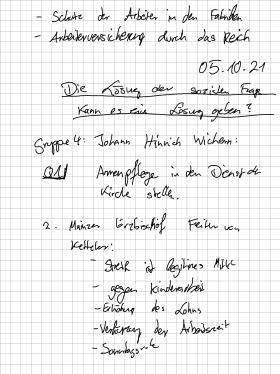 - Schutz der Arbeiter in den Fabriken
- Arbeiterversicherung durch das Reich
05.10.21
Die Lösung der sozialen Frage
Kann es eine Lösung geben?
Gruppe 4: Johann Hinrich Wichern:
Armenpflege in den Dienst der
Kirche stellen.
2. Mainzer Erzbischof von
Ketteler:
- Streik ist legitimes Mittel
- gegen Kinderarbeit
- Erhöhung des Lohns
- Verkürzung der Arbeitszeit
- Sonntagsruhe